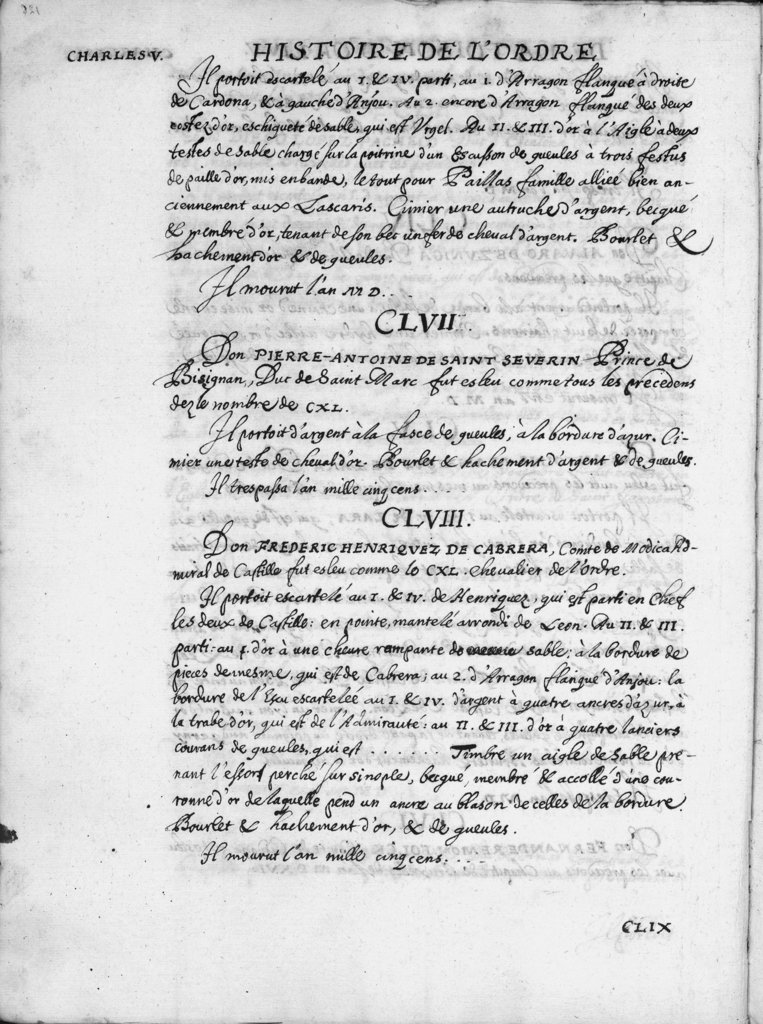 821
CHARLES V.
HISTOIRE DE L'ORDRE
Il portoit escartelé au I. & IV. parti, au 1. d'Arragon flanqué à droite
de Cardona, & à gauche d'Anjou. Au 2. encore d'Arragon flanqué des deux
costez d'or, eschiqueté de sable, qui est Vrgel. Au II. & III. d'or à l'Aigle à deux
testes de sable chargé sur la poitrine d'un Escusson de gueules à trois festus
de paille d'or, mis en bande, le tout pour Paillas famille alliée bien an-
ciennement aux Lascaris. Cimier une autruche d'argent, becqué
& membré d'or, tenant de son bec un fer de cheval d'argent. Bourlet &
hachement d'or & de gueules.
Il mourut l'an M D . . .
CLVII.
Don PIERRE-ANTOINE DE SAINT SEVERIN Prince de
Bisignan, Duc de Saint Marc fut esleu comme tous les precedens
dez le nombre de CXL.
Il portoit d'argent à la fasce de gueules, à la bordure d'azur. Ci-
mier une teste de cheval d'or. Bourlet & hachement d'argent & de gueules.
Il trespassa l'an mille cinq cens . . . .
CLVIII.
Don FREDERIC HENRIQVEZ DE CABRERA, Comte de Modica Ad-
miral de Castille fut esleu comme le CXL. Chevalier de l'ordre.
Il portoit escartelé au I. & IV. de Henriquez, qui est parti en Chef
les deux de Castille: en pointe, mantelé arrondi de Leon. Au II. & III.
parti: au 1. d'or à une cheure rampante de sable; à la bordure de
pieces de mesme, qui est de Cabrera; au 2. d'Arragon flanqué d'Anjou: la
bordure de l'Escu escartelée au I. & IV. d'argent à quatre ancres d'azur, à
la trabe d'or, qui est de l'Admirauté: au II. & III. d'or à quatre lanciers
courans de gueules, qui est . . . . . . . Timbre un aigle de sable pre-
nant l'essor perché sur sinople, becqué, membré & accollé d'une cou-
ronne d'or de laquelle pend un ancre au blason de celles de la bordure.
Bourlet & hachement d'or, & de gueules.
Il mourut l'an mille cinq cens . . . .
CLIX